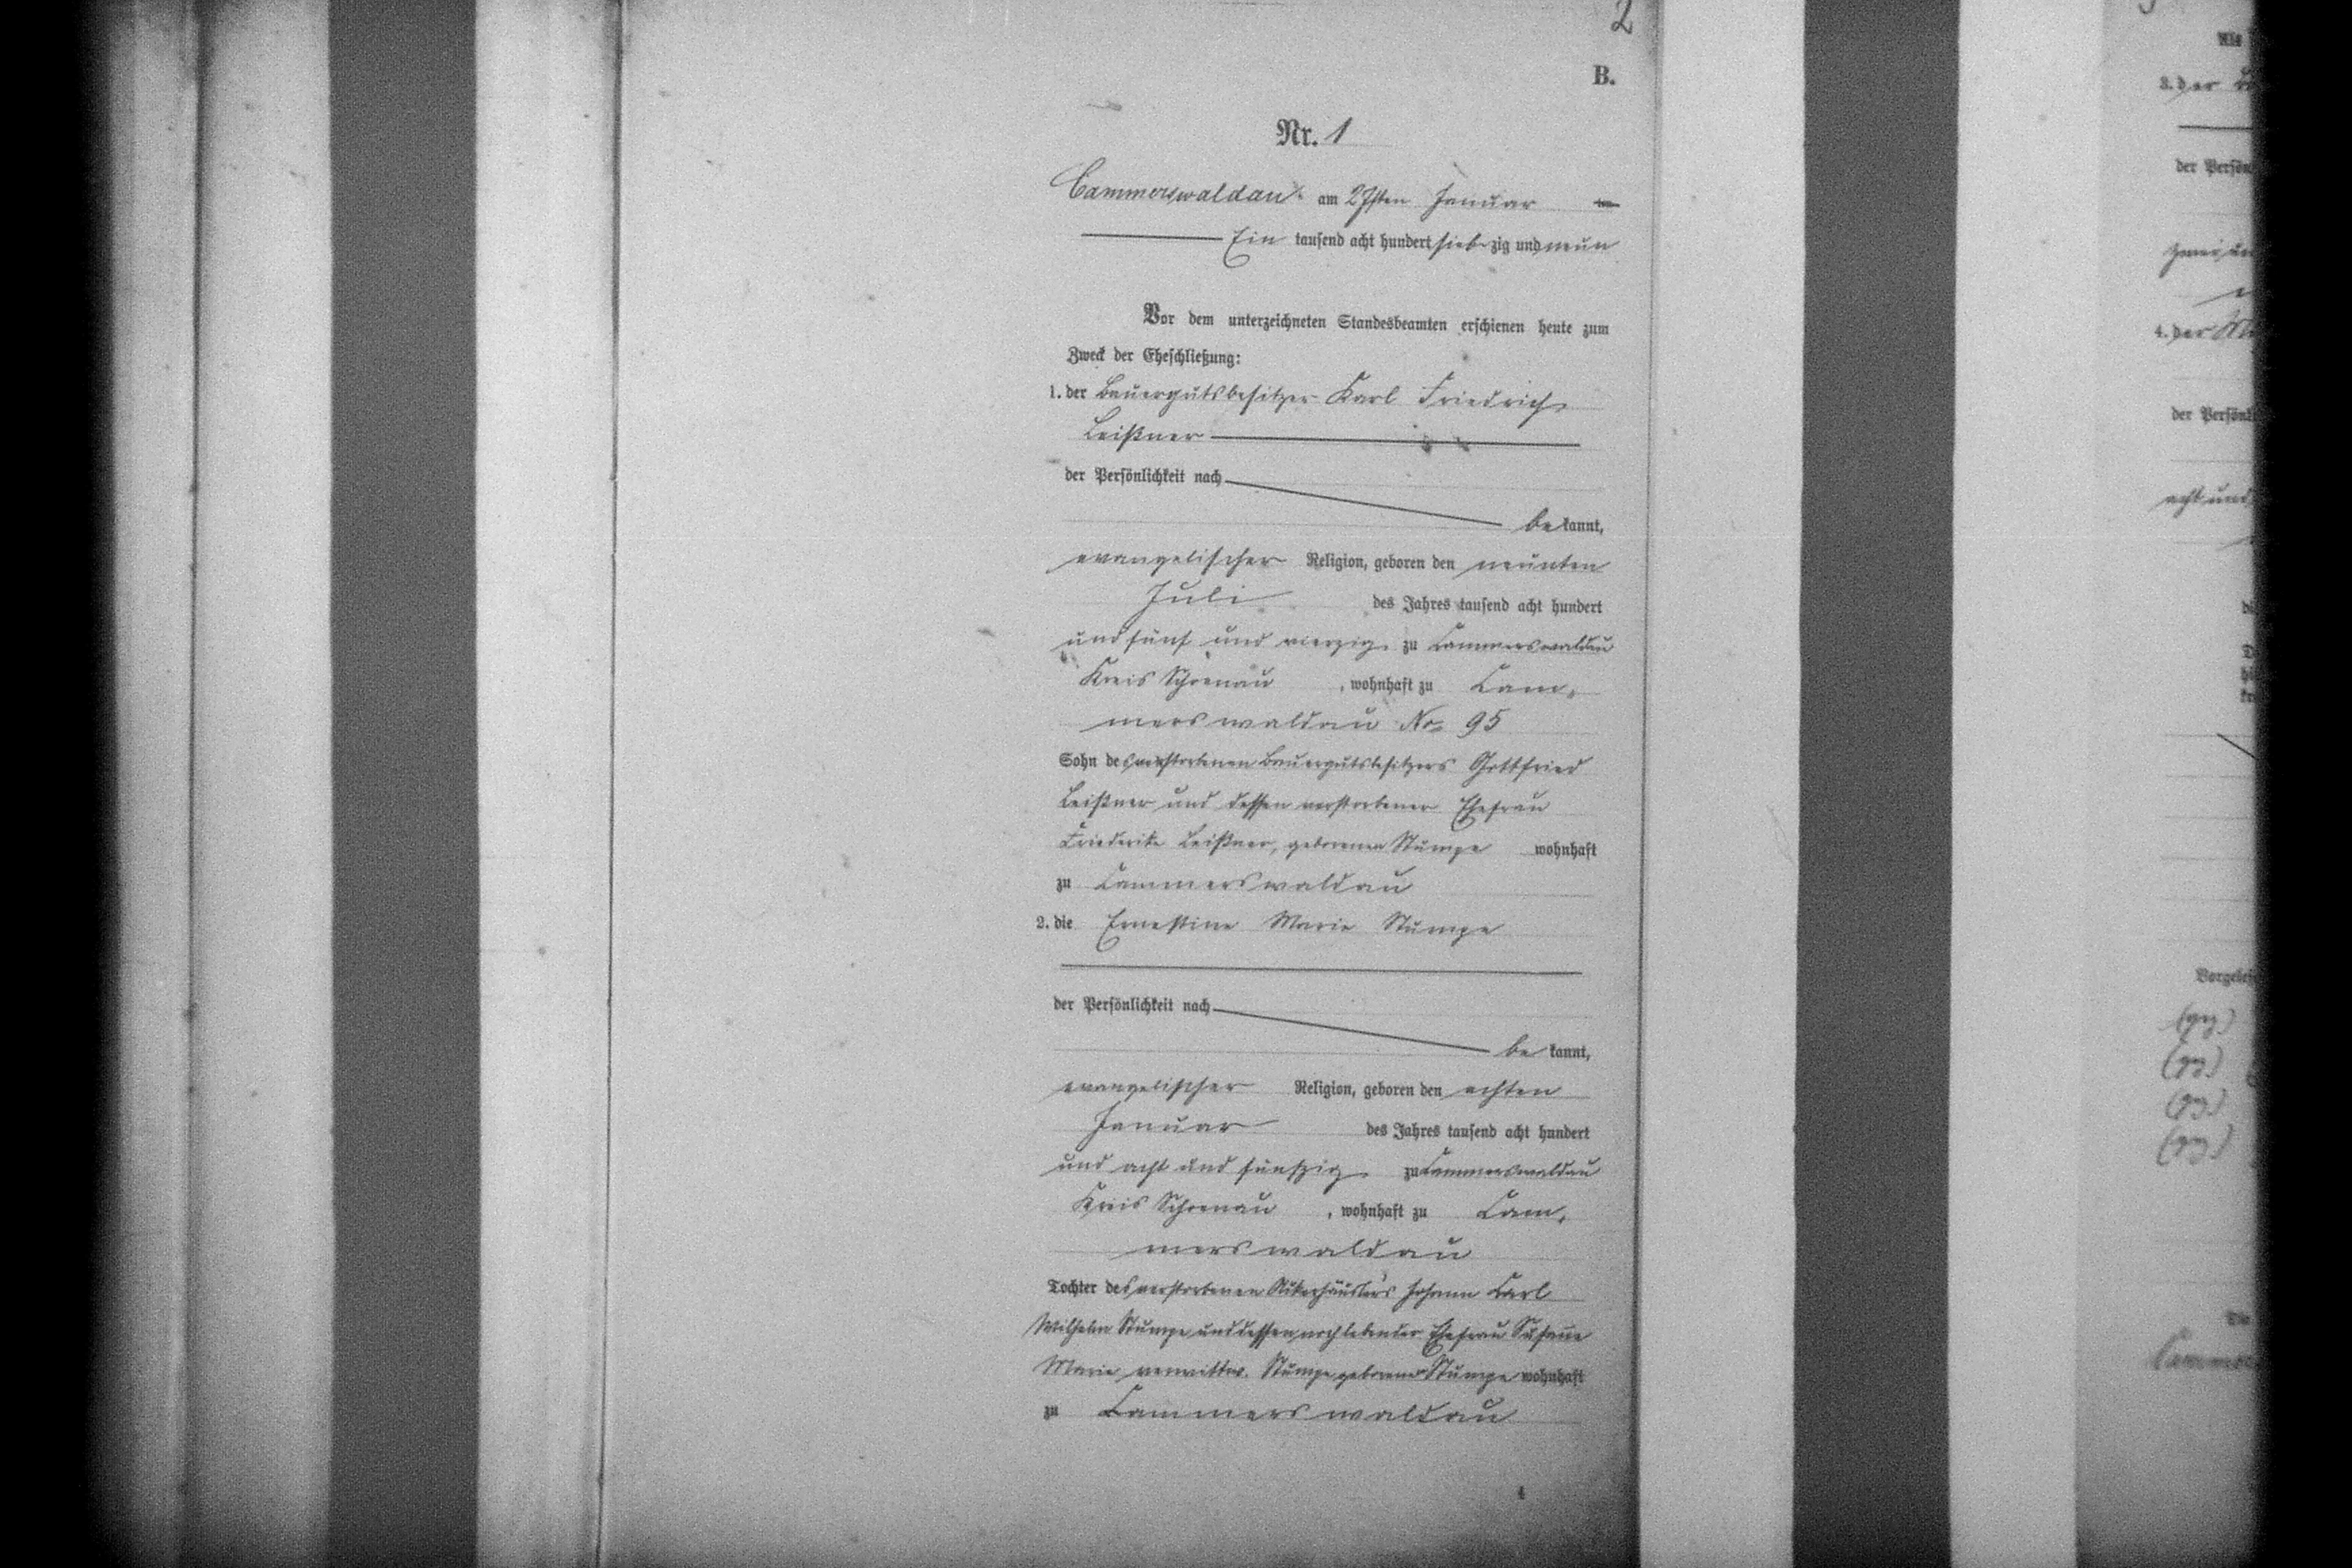 2
B.
Nr. 1
Cammerswaldau am 27sten Januar
Ein tausend acht hundert siebzig und neun
Vor dem unterzeichneten Standesbeamten erschienen heute zum
Zweck der Eheschließung:
1. der Bauergutsbesitzer Karl Friedrich
Leißner
der Persönlichkeit nach
bekannt,
evangelischer Religion, geboren den neunten
Juli des Jahres tausend acht hundert
und fünf und vierzig zu Cammerswaldau
Kreis Schoenau, wohnhaft zu Cam-
merswaldau No 95
Sohn des verstorbenen Bauergutsbesitzers Gottfried
Leißner und dessen verstorbener Ehefrau
Friederike Leißner, geborenen Stumpe wohnhaft
zu Cammerswaldau
2. die Ernestine Marie Stumpe
der Persönlichkeit nach
bekannt,
evangelischer Religion, geboren den achten
Januar des Jahres tausend acht hundert
und acht und fünfzig zu Cammerswaldau
Kreis Schoenau, wohnhaft zu Cam-
merswaldau
Tochter des verstorbenen Ackerhäuslers Johann Carl
Wilhelm Stumpe und dessen noch lebender Ehefrau Susanne
Marie verwittw. Stumpe geborene Stumpe wohnhaft
zu Cammerswaldau
4
3. der
der Persön
zwei un
4. der
der Persönl
acht und
Vorgeles
(gz.)
(gz.)
(gz.)
(gz.)
Cammer